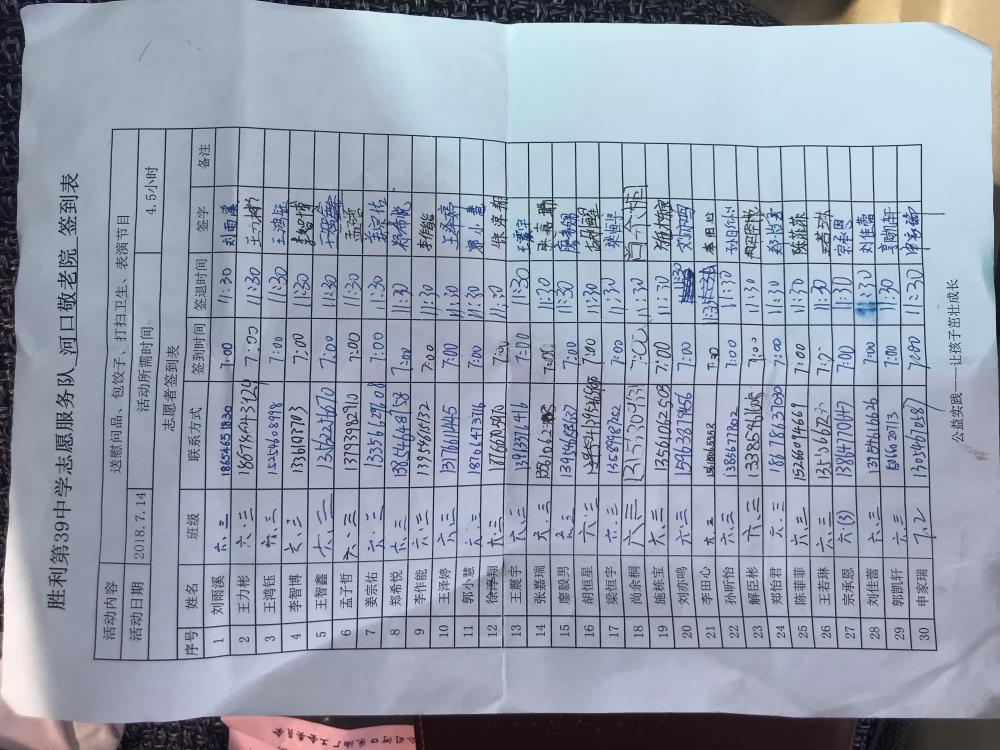 胜利第39中学志愿服务队 河口敬老院 签到表
活动内容 送慰问品、包饺子、打扫卫生、表演节目
活动日期 2018.7.14 活动所需时间: 4.5小时
志愿者签到表
序号 姓名 班级 联系方式 签到时间 签退时间 签字 备注
1 刘雨溪 六.三 18654651830 7:00 11:30 刘雨溪
2 王力彬 六.三 7:00 11:30 王力彬
3 王鸿钰 六.三 15256608998 7:00 11:30 王鸿钰
4 李智博 六.三 7:00 11:30 李智博
5 王智鑫 六.三 13562221670 7:00 11:30
6 孟子哲 六.三 13793982910 7:00 11:30 孟子哲
7 姜宗佑 六.三 13356629108 7:00 11:30 姜宗佑
8 郑希悦 六.三 13854668158 7:00 11:30 郑希悦
9 李作能 六.三 13954615932 7:00 11:30 李作能
10 王泽婷 六.三 13176611445 7:00 11:30 王泽婷
11 郭小慧 六.三 18764737116 7:00 11:30 郭小慧
12 徐浮翔 六.三 7:00 11:30
13 王晨宇 六.三 13963376416 7:00 11:30 王晨宇
14 张嘉瑞 六.三 7:00 11:30 张嘉瑞
15 廖毅男 13954682637 7:00 11:30 廖毅男
16 胡恒星 六.三 7:00 11:30 胡恒星
17 梁恒宇 六.三 13589987202 7:00 11:30 梁恒宇
18 尚余桐 六.三 7:00 11:30 尚余桐
19 施栋宝 六.三 13561062509 7:00 11:30 施栋宝
20 刘亦鸣 六.三 15963879456 7:00 11:30 刘亦鸣
21 李田心 六.三 11:30 李田心
22 孙昕怡 六.三 13856677802 7:00 11:30 孙昕怡
23 解庄彬 六.三 7:00 11:30
24 郑怡君 六.三 18678637030 7:00 11:30 郑怡君
25 陈菲菲 六.三 15266094669 7:00 11:30 陈菲菲
26 王若琳 六.三 7:00 11:30 王若琳
27 宗承恩 六(3) 13864770147 7:00 11:30 宗承恩
28 刘佳蕾 六.三 13754616626 7:00 11:30 刘佳蕾
29 郭凯轩 六.三 7:00 11:30 郭凯轩
30 申家瑞 7.2 13054667087 7:00 11:30 申家瑞
公益实践——让孩子茁壮成长